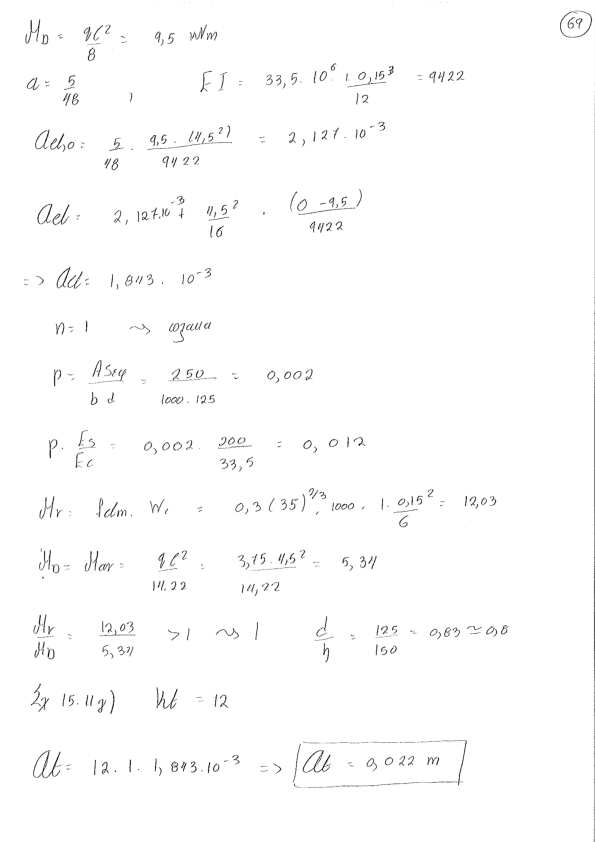 69
M_D = qℓ²/8 = 9,5 kNm
a = 5/48 , EI = 33,5 · 10⁶ · 1 · 0,15³/12 = 9422
ael,0 = 5/48 · 9,5 · (4,5²)/9422 = 2,127 · 10⁻³
ael = 2,127·10⁻³ + 4,5²/16 · (0 - 9,5)/9422
=> ael = 1,843 · 10⁻³
n = 1 ~>
p = Aseq/b d = 250/1000 · 125 = 0,002
p · Es/Ec = 0,002 · 200/33,5 = 0,012
Mr = fctm · Wc = 0,3 (35)^2/3 · 1000 · 1 · 0,15²/6 = 12,03
M_D = Mav = qℓ²/14.22 = 3,75 · 4,5²/14,22 = 5,34
Mr/M_D = 12,03/5,34 > 1 ~> 1 d/h = 125/150 = 0,83 ≃ 0,8
15.11 g) kt = 12
at = 12 · 1 · 1,843 · 10⁻³ => at = 0,022 m